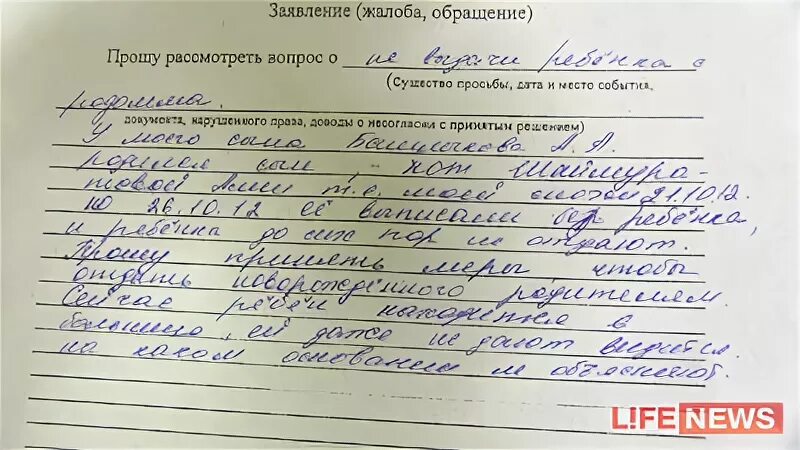 Заявление (жалоба, обращение)
Прошу рассмотреть вопрос о не выдачи ребёнка с
(Существо просьбы, дата и место события,
роддома.
документа, нарушенного права, доводы о несогласии с принятым решением)
У моего сына А. А.
родился сын, от Шаймура-
товой т.е. моей снохи 21.10.12.
но 26.10.12 её выписали без ребёнка,
и ребёнка до сих пор не отдают.
Прошу принять меры, чтобы
отдать новорождённого родителям.
Сейчас ребён находится в
больнице, ей даже не дают видится.
на каком основании не объясняют.
L!FE NEWS